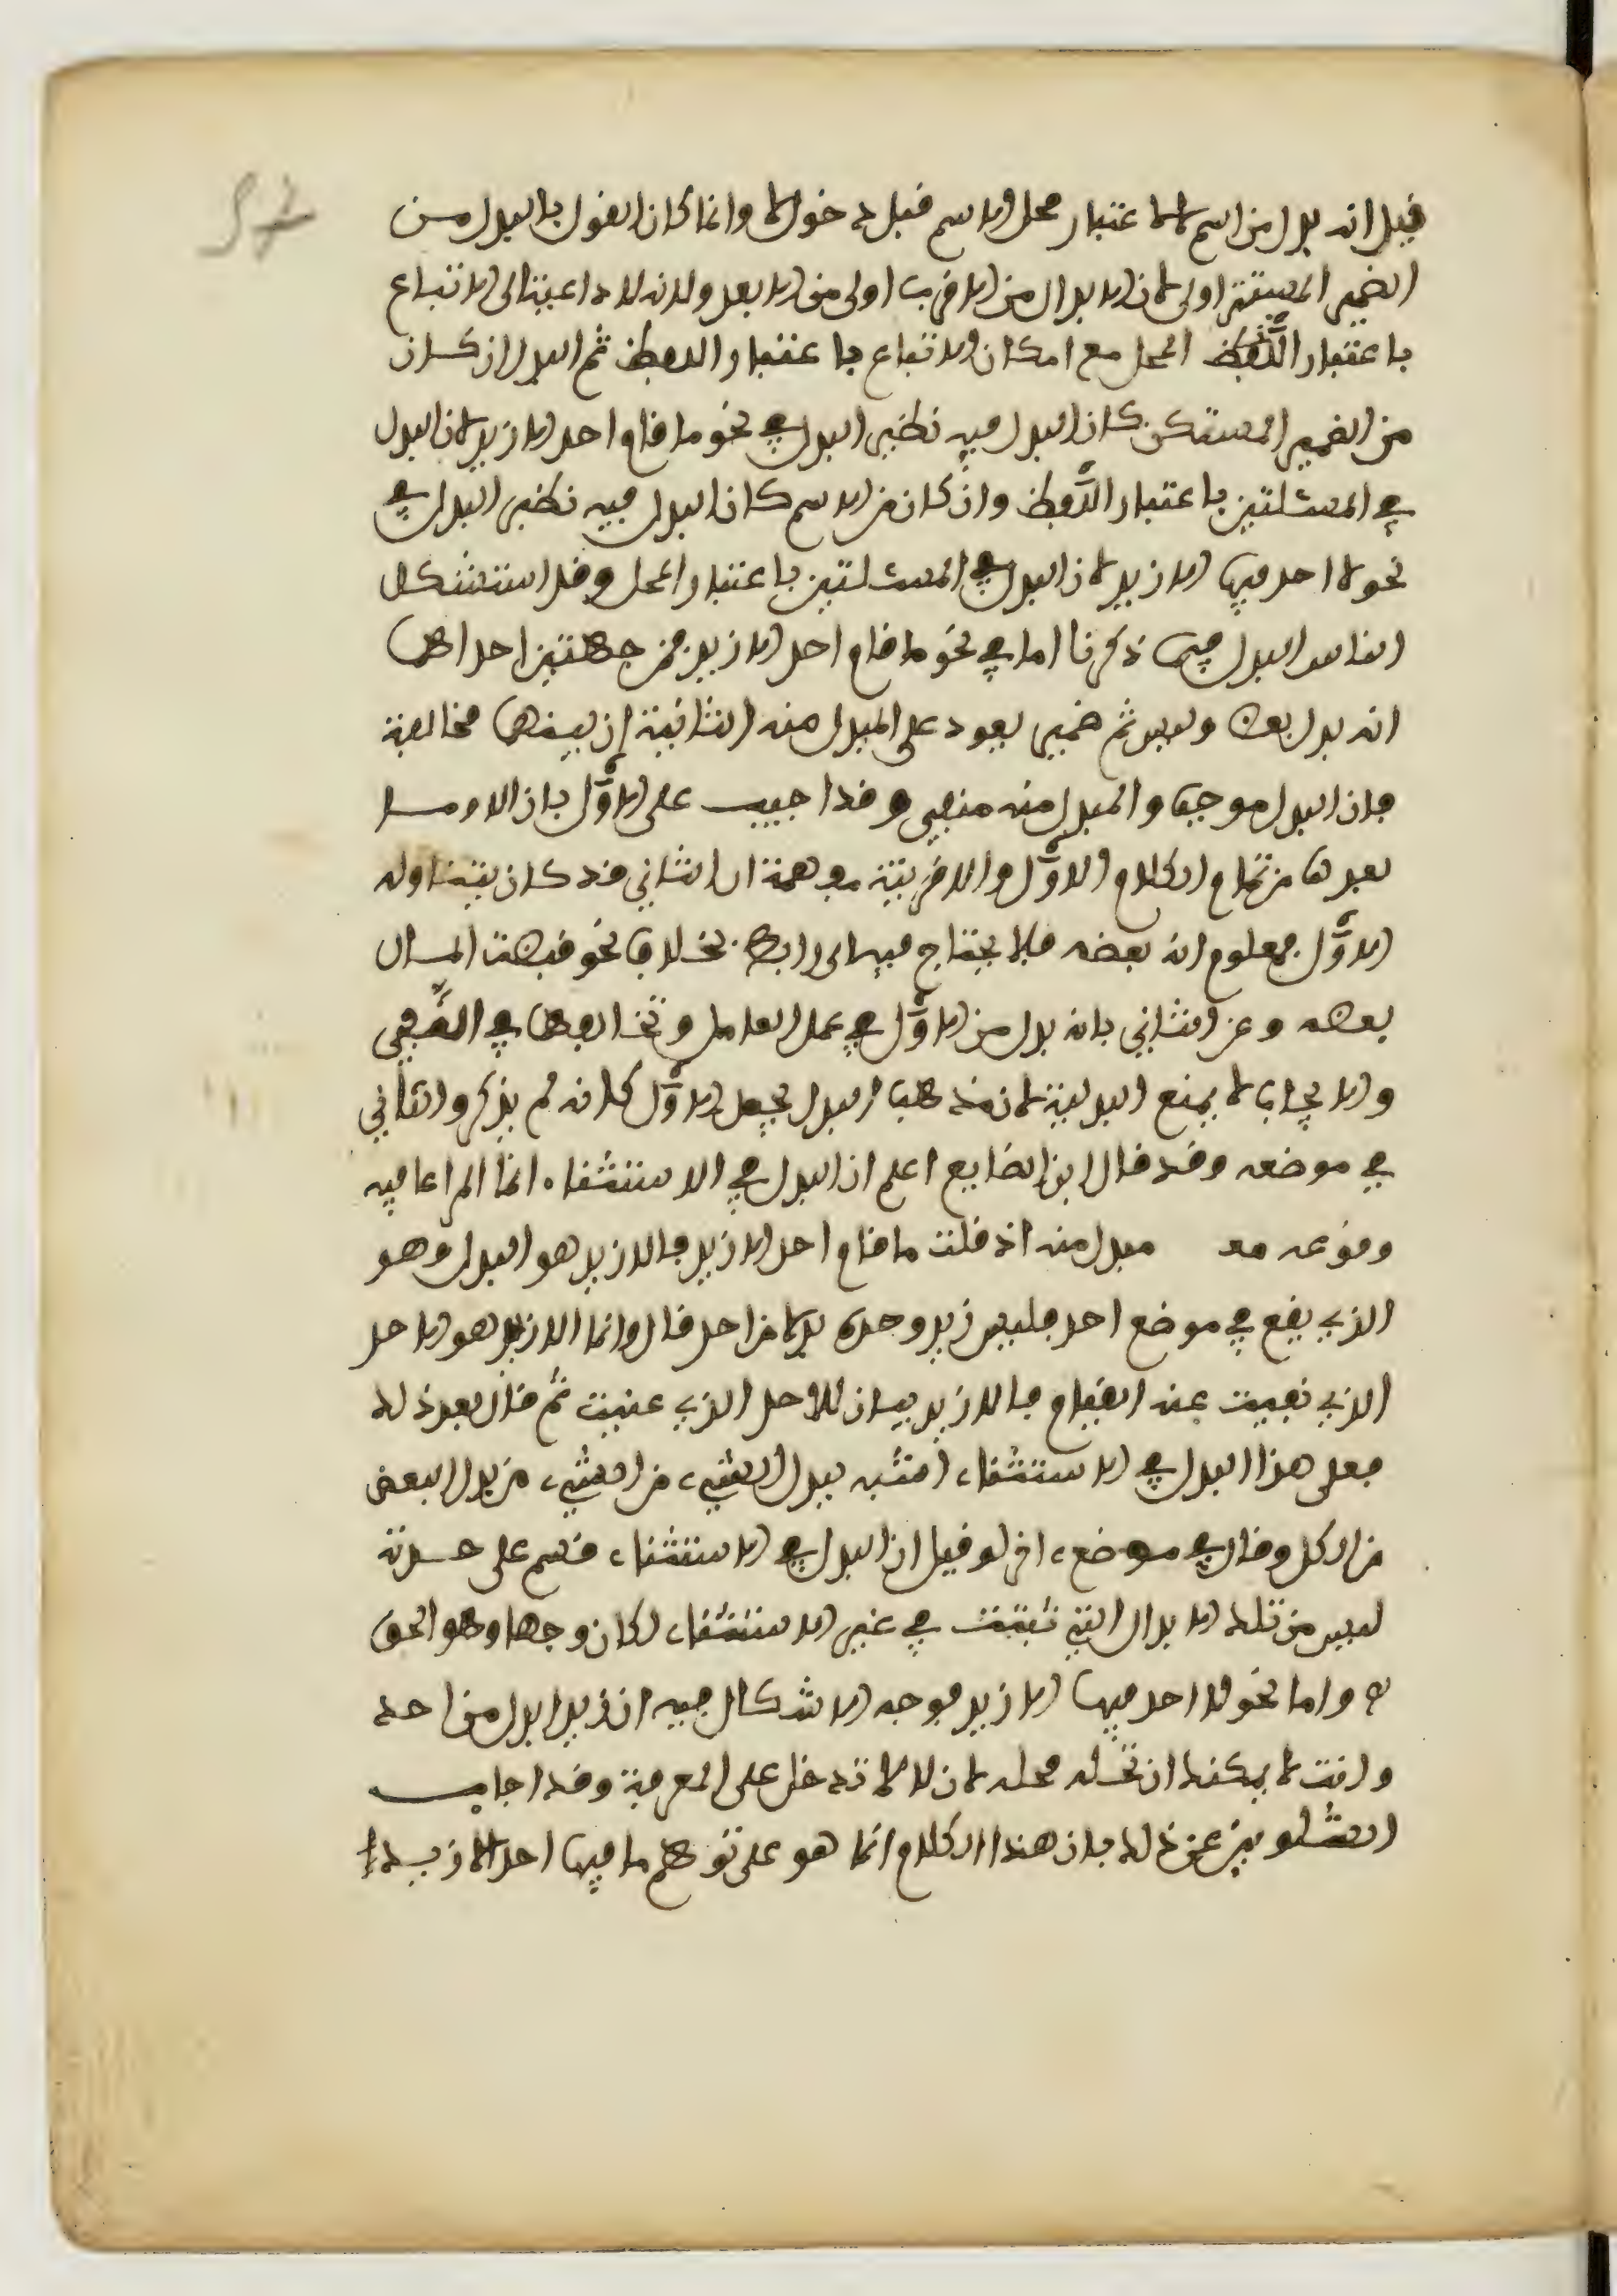 قيل انه بدل من اسم لا باعتبار محل الاسم قبل دخولها وانما كان القول بالبدل من
الضمير المستتر اولى لان الابدال من الاقرب اولى من الابعد ولانه لا داعية الى الاتباع
باعتبار المحل مع امكان الاتباع باعتبار اللفظ ثم البدل ان كان
من الضمير المستكن كان البدل فيه نظير البدل في نحو ما قام احد الا زيد لان البدل
في المسئلتين باعتبار اللفظ وان كان من الاسم كان البدل فيه نظير البدل في
نحو لا احد فيها الا زيد لان البدل في المسئلتين باعتبار المحل وقد استشكل
الناس البدل فيما ذكرنا اما في نحو ما قام احد الا زيد فمن جهتين احداهما
انه بدل بعض وليس ثم ضمير يعود على المبدل منه الثانية ان بينهما مخالفة
فان البدل موجب والمبدل منه منفي وقد اجيب على الاول بان الا وما
بعدها من تمام الكلام الاول والا قرينة مفهمة ان الثاني قد كان يتناوله
الاول فمعلوم انه بعضه فلا يحتاج فيه الى رابط بخلاف نحو قبضت المال
بعضه وعن الثاني بانه بدل من الاول في عمل العامل وتخالفهما في النفي
والايجاب لا يمنع البدلية لان مذهب البدل يجعل الاول كانه لم يذكر والثاني
في موضعه وقد قال ابن الضايع اعلم ان البدل في الاستثناء انما المراعا فيه
وقوعه مع مبدل منه اذ قلت ما قام احد الا زيد فالا زيد هو البدل وهو
الذي يقع في موضع احد فليس زيد وحده بدلا من احد قال وانما الا زيد هو الاحد
الذي نفيت عنه القيام فالا زيد بيان للاحد الذي عنيت ثم قال بعد ذلك
فعلى هذا البدل في الاستثناء اشبه ببدل الشيء من الشيء من بدل البعض
من الكل وقال في موضع اخر لو قيل ان البدل في الاستثناء قسم على حدته
ليس من تلك الابدال التي تثبتت في غير الاستثناء لكان وجها وهو الحق
واما نحو لا احد فيها الا زيد فوجه الاشكال فيه ان زيدا بدل من احد
وانت لا يمكنك ان تحله محله لان لا لا تدخل على المعرفة وقد اجاب
الشلوبين عن ذلك بان هذا الكلام انما هو على توهم ما فيها احد الا زيد